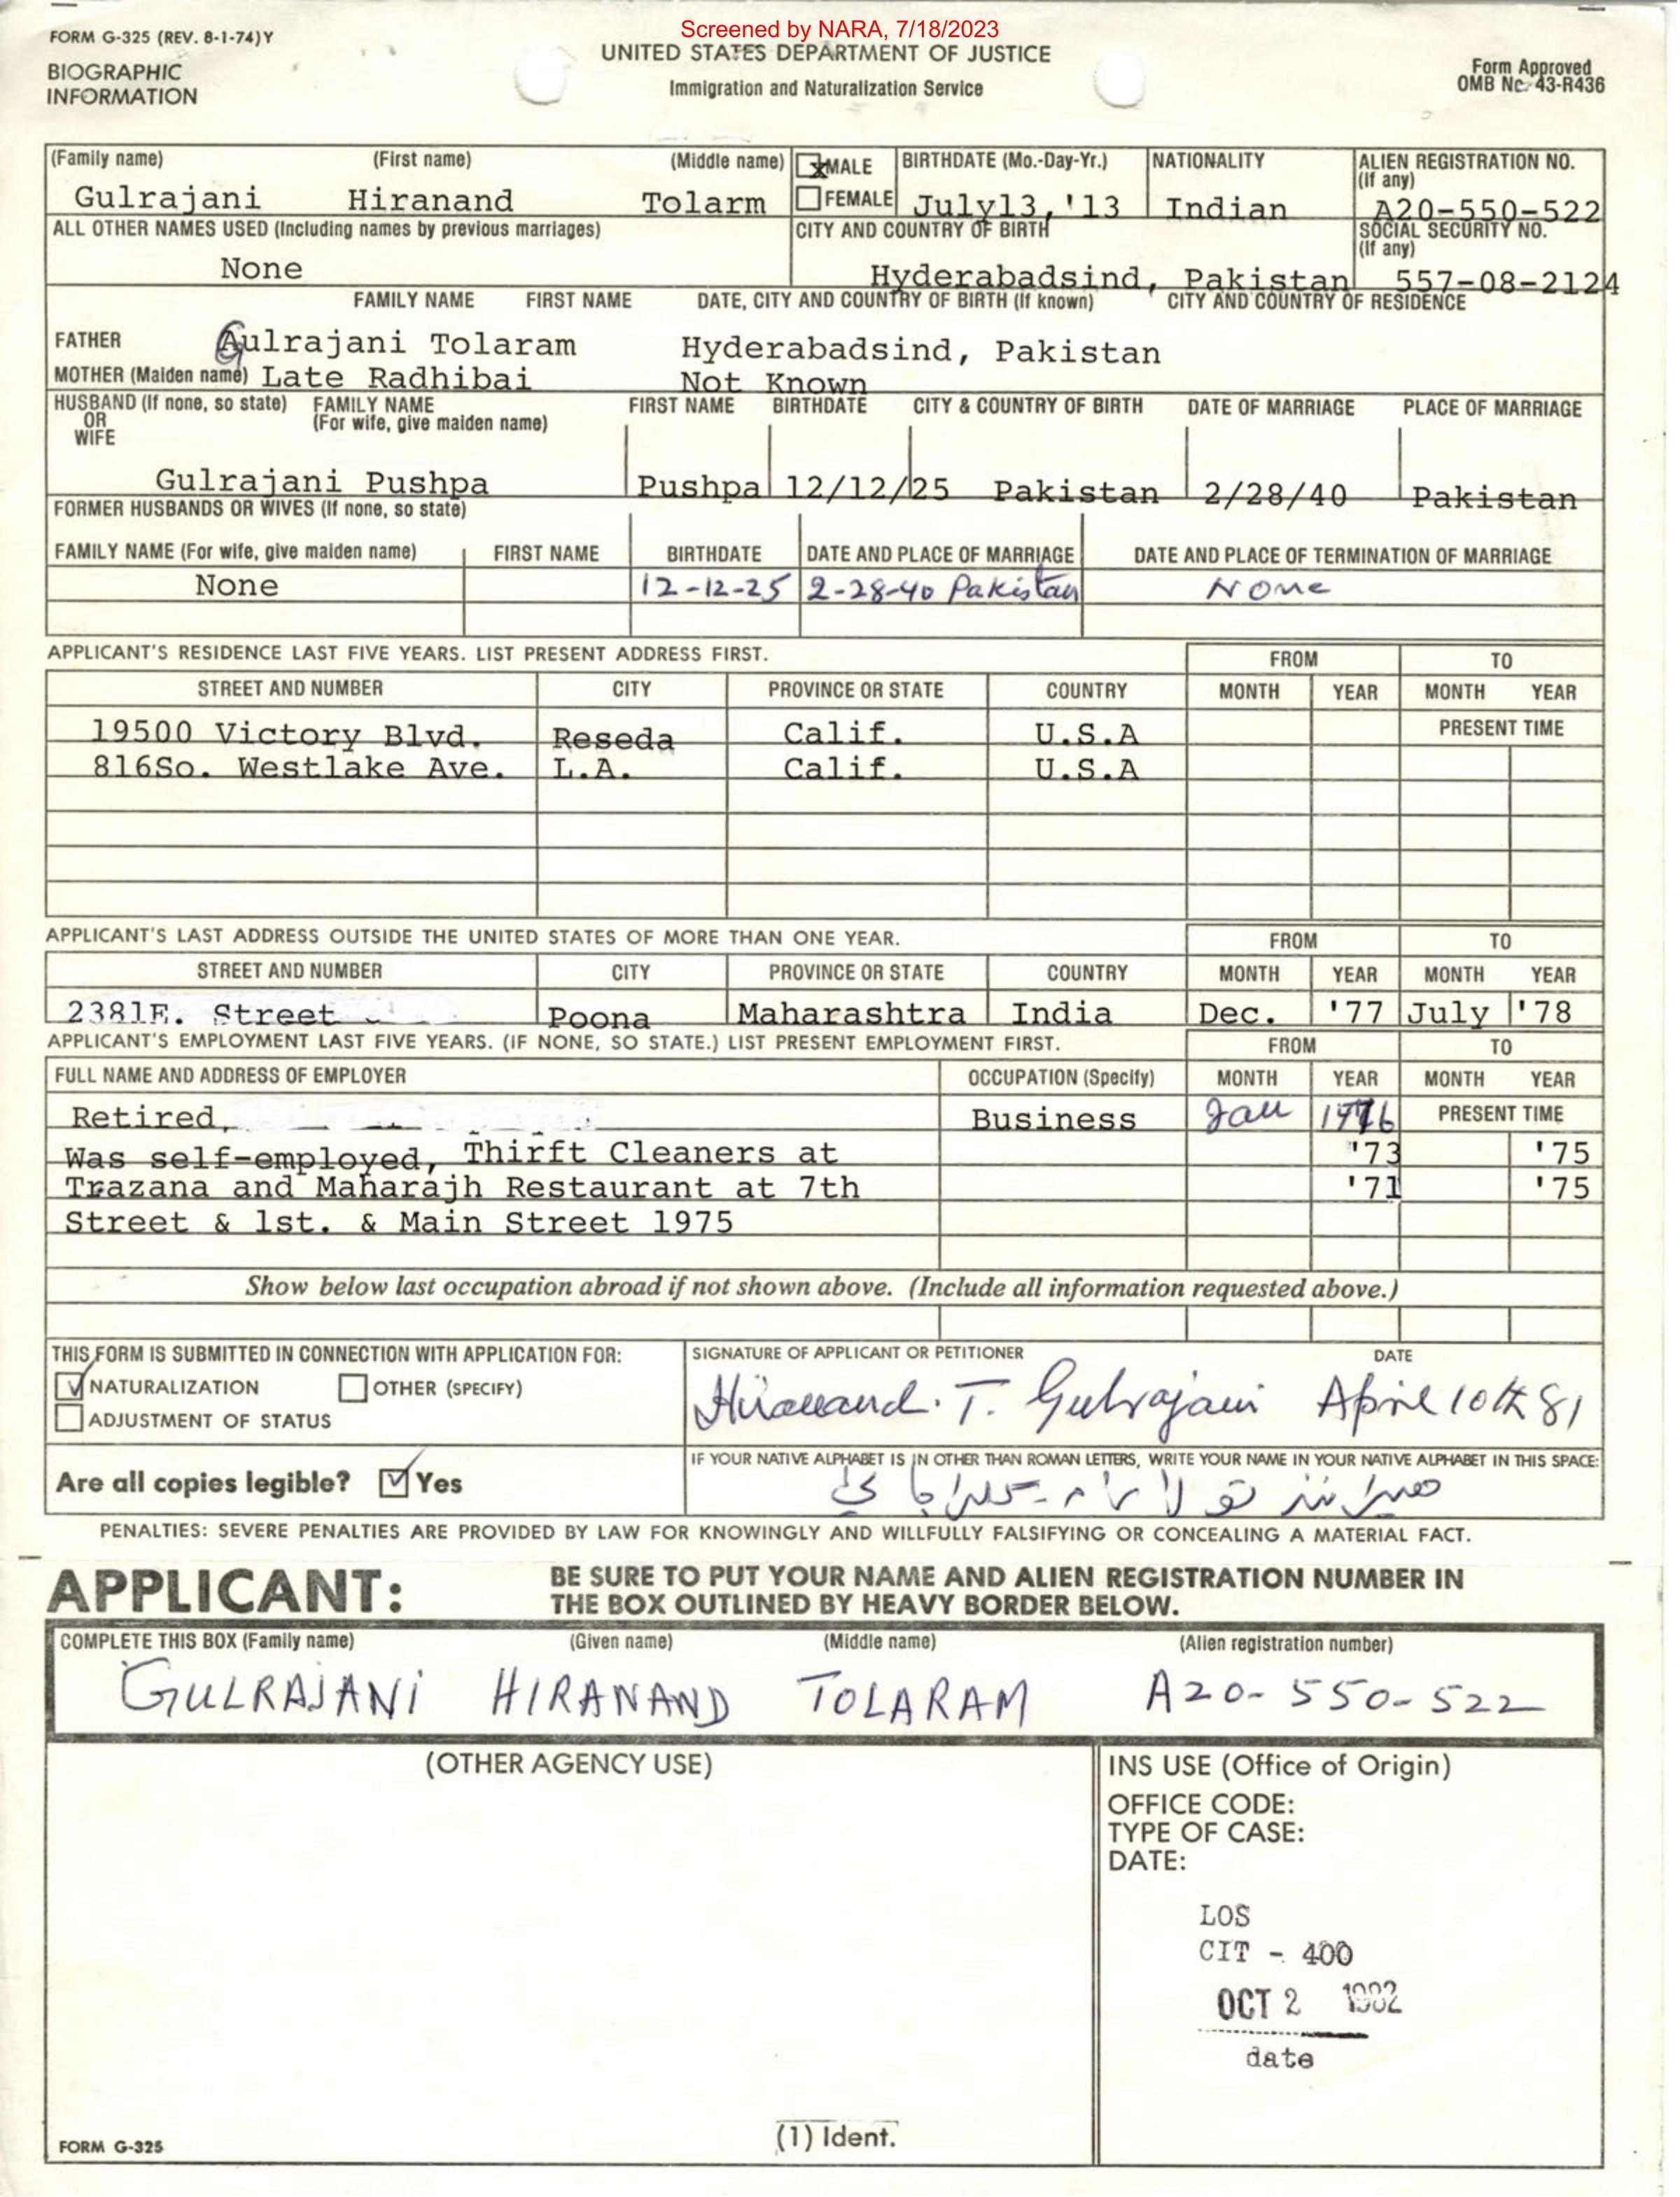 Screened by NARA, 7/18/2023
FORM G-325 (REV. 8-1-74)Y
UNITED STATES DEPARTMENT OF JUSTICE
BIOGRAPHIC
INFORMATION
Immigration and Naturalization Service
Form Approved
OMB No. 43-R436
(Family name) (First name) (Middle name) MALE BIRTHDATE (Mo.-Day-Yr.) NATIONALITY ALIEN REGISTRATION NO.
(If any)
Gulrajani Hiranand Tolarm FEMALE July13,'13 Indian A20-550-522
ALL OTHER NAMES USED (Including names by previous marriages) CITY AND COUNTRY OF BIRTH SOCIAL SECURITY NO.
(If any)
None Hyderabadsind, Pakistan 557-08-2124
FAMILY NAME FIRST NAME DATE, CITY AND COUNTRY OF BIRTH (If known) CITY AND COUNTRY OF RESIDENCE
FATHER Gulrajani Tolaram Hyderabadsind, Pakistan
MOTHER (Maiden name) Late Radhibai Not Known
HUSBAND (If none, so state) FAMILY NAME FIRST NAME BIRTHDATE CITY & COUNTRY OF BIRTH DATE OF MARRIAGE PLACE OF MARRIAGE
OR (For wife, give maiden name)
WIFE
Gulrajani Pushpa Pushpa 12/12/25 Pakistan 2/28/40 Pakistan
FORMER HUSBANDS OR WIVES (If none, so state)
FAMILY NAME (For wife, give maiden name) FIRST NAME BIRTHDATE DATE AND PLACE OF MARRIAGE DATE AND PLACE OF TERMINATION OF MARRIAGE
None 12-12-25 2-28-40 Pakistan None
APPLICANT'S RESIDENCE LAST FIVE YEARS. LIST PRESENT ADDRESS FIRST. FROM TO
STREET AND NUMBER CITY PROVINCE OR STATE COUNTRY MONTH YEAR MONTH YEAR
19500 Victory Blvd. Reseda Calif. U.S.A PRESENT TIME
816So. Westlake Ave. L.A. Calif. U.S.A
APPLICANT'S LAST ADDRESS OUTSIDE THE UNITED STATES OF MORE THAN ONE YEAR. FROM TO
STREET AND NUMBER CITY PROVINCE OR STATE COUNTRY MONTH YEAR MONTH YEAR
2381E. Street Poona Maharashtra India Dec. '77 July '78
APPLICANT'S EMPLOYMENT LAST FIVE YEARS. (IF NONE, SO STATE.) LIST PRESENT EMPLOYMENT FIRST. FROM TO
FULL NAME AND ADDRESS OF EMPLOYER OCCUPATION (Specify) MONTH YEAR MONTH YEAR
Retired, Business Jan 1976 PRESENT TIME
Was self-employed, Thirft Cleaners at '73 '75
Trazana and Maharajh Restaurant at 7th '71 '75
Street & 1st. & Main Street 1975
Show below last occupation abroad if not shown above. (Include all information requested above.)
THIS FORM IS SUBMITTED IN CONNECTION WITH APPLICATION FOR: SIGNATURE OF APPLICANT OR PETITIONER DATE
NATURALIZATION OTHER (SPECIFY)
ADJUSTMENT OF STATUS
Hiranand. T. Gulrajani April 10th 81
IF YOUR NATIVE ALPHABET IS IN OTHER THAN ROMAN LETTERS, WRITE YOUR NAME IN YOUR NATIVE ALPHABET IN THIS SPACE:
Are all copies legible? Yes
PENALTIES: SEVERE PENALTIES ARE PROVIDED BY LAW FOR KNOWINGLY AND WILLFULLY FALSIFYING OR CONCEALING A MATERIAL FACT.
APPLICANT: BE SURE TO PUT YOUR NAME AND ALIEN REGISTRATION NUMBER IN
THE BOX OUTLINED BY HEAVY BORDER BELOW.
COMPLETE THIS BOX (Family name) (Given name) (Middle name) (Alien registration number)
GULRAJANI HIRANAND TOLARAM A20-550-522
(OTHER AGENCY USE) INS USE (Office of Origin)
OFFICE CODE:
TYPE OF CASE:
DATE:
LOS
CIT - 400
OCT 2 1982
date
(1) Ident.
FORM G-325